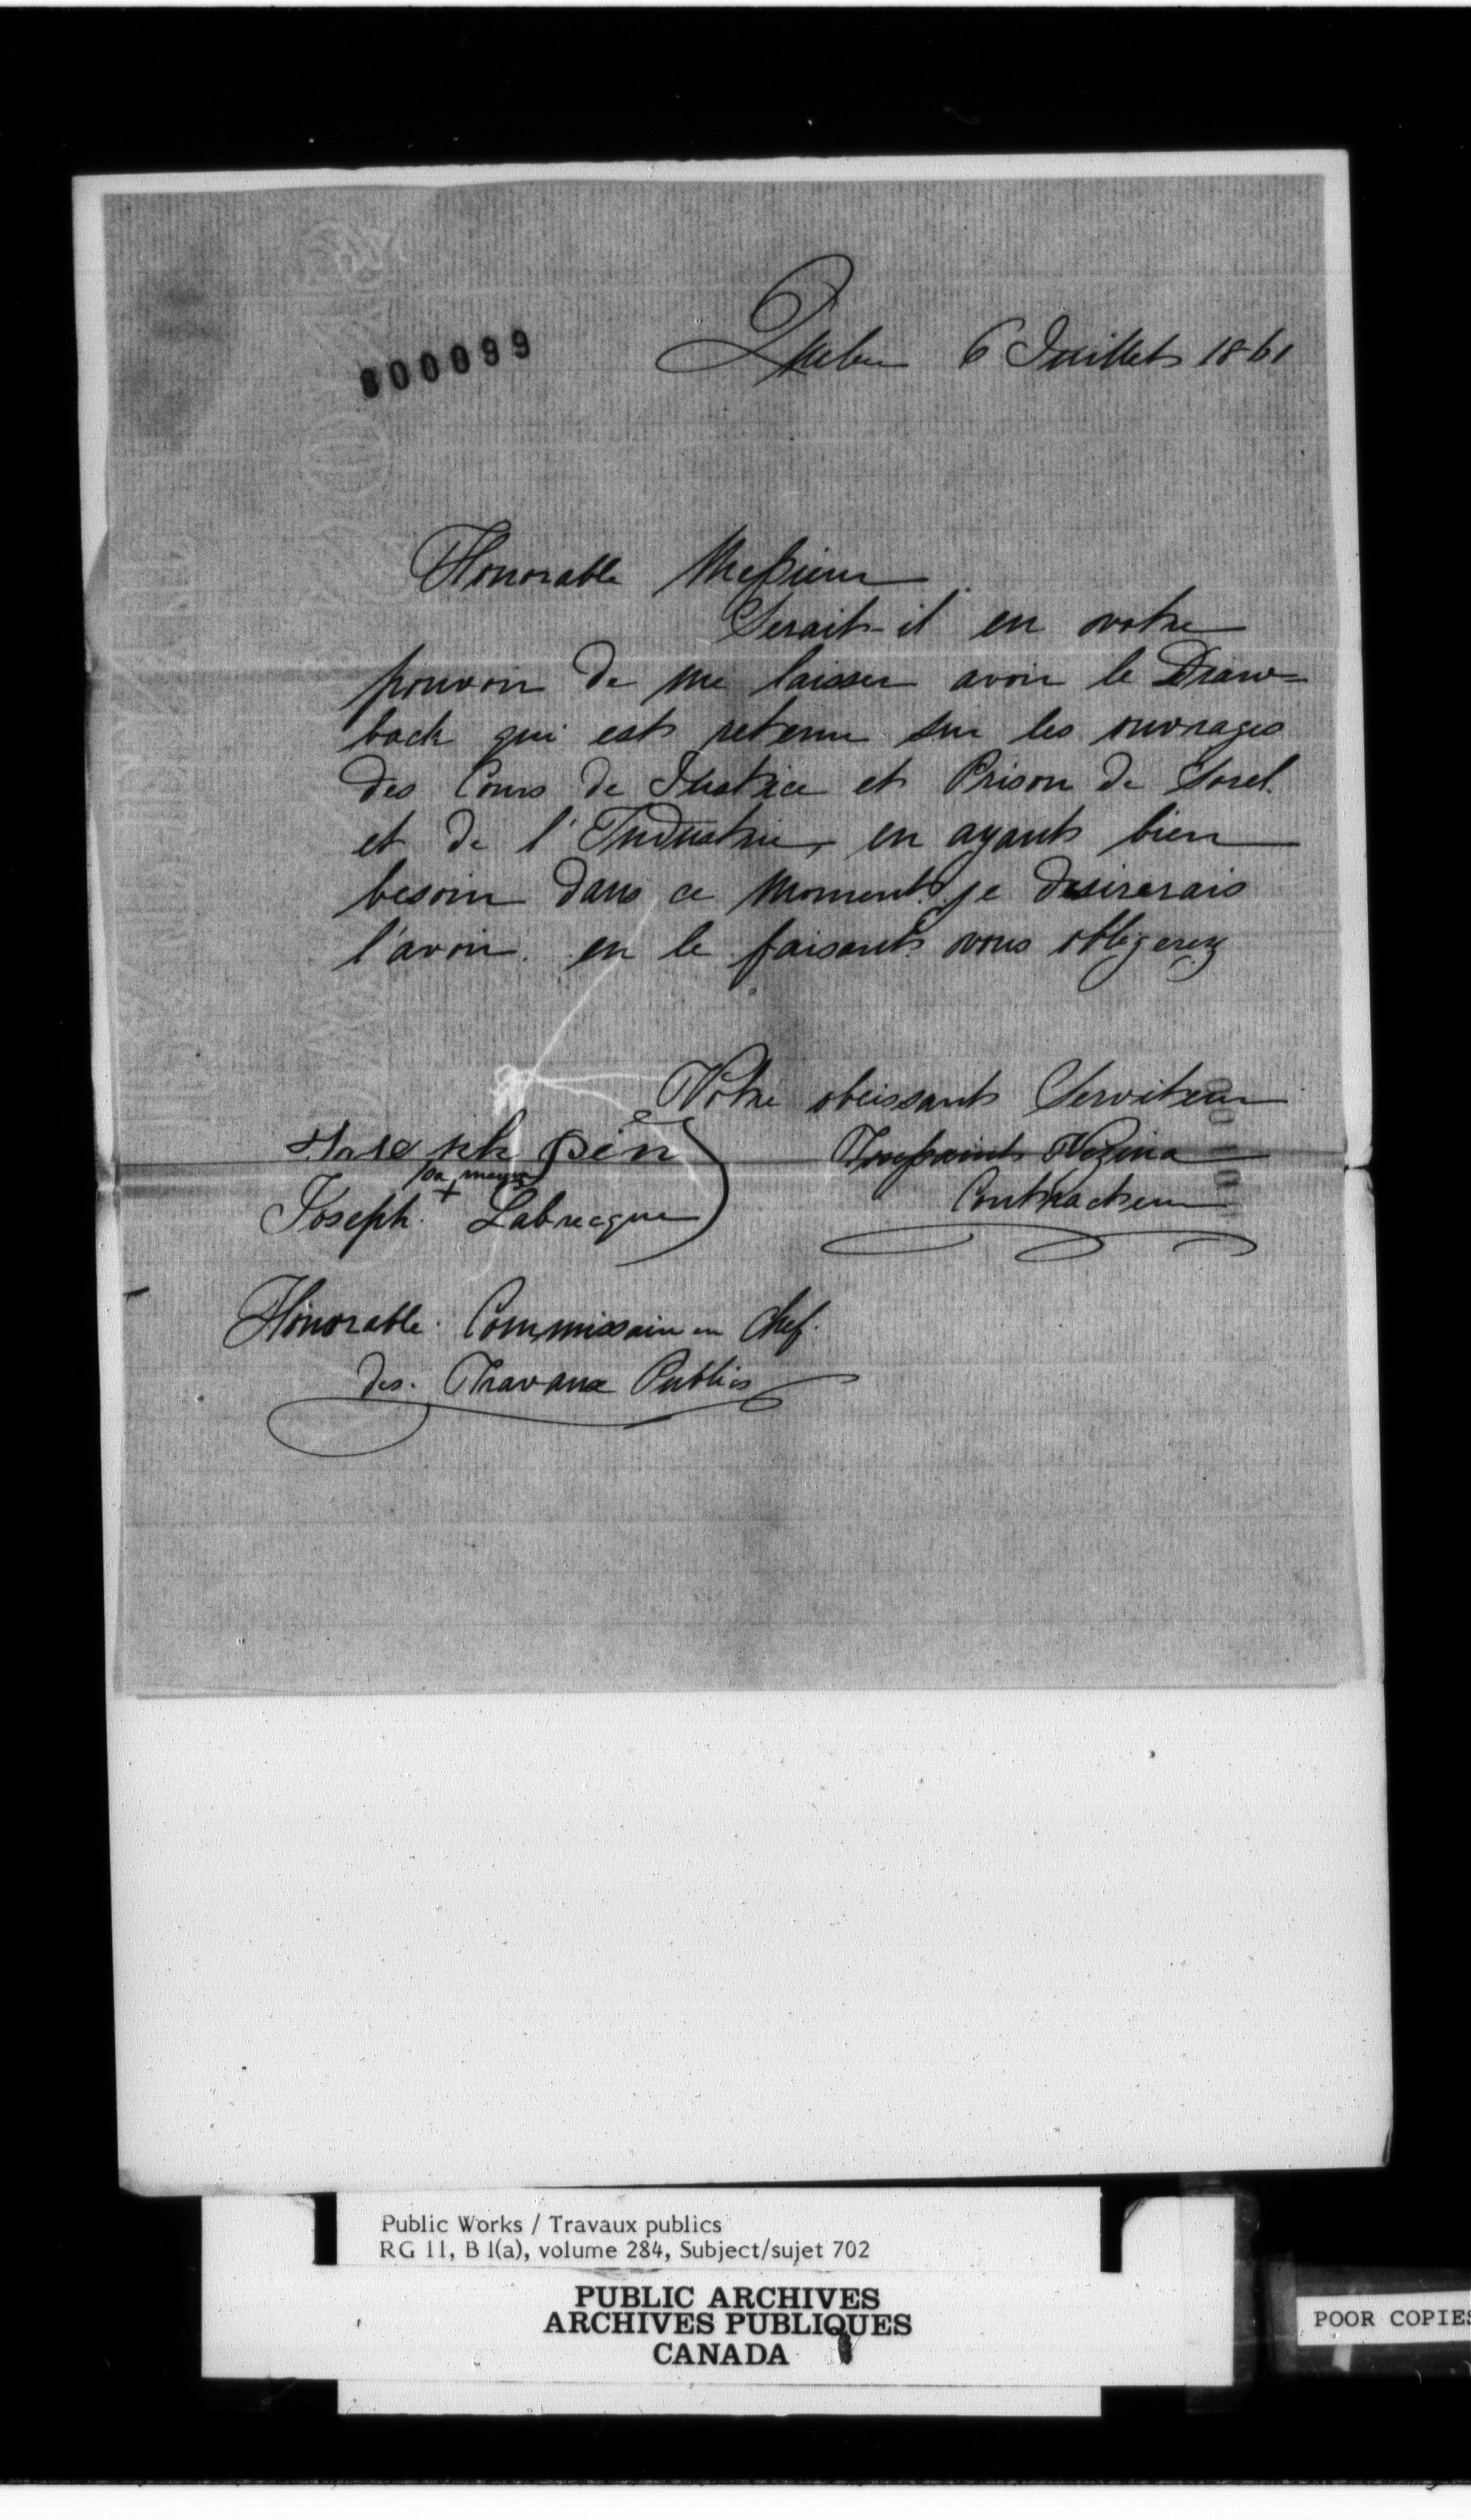 000099
Quebec 6 Juillet 1861
Honorable Messieur
Serait-il en votre
pouvoir de me laisser avoir le Draw=
back qui est retenu sur les ouvrages
des Cours de Justice et Prison de Sorel.
et de l'Industrie, en ayant bien
besoin dans ce moment. je desirerais
l'avoir. en le faisant vous obligerez
Votre obeissant Serviteur
Joseph
Toussaint Vezina
sa marque
+
Contracteur
Joseph. Labrecque
Honorable. Commissaire en Chef.
des. Travaux Publics
Public Works / Travaux publics
RG 11, B 1(a), volume 284, Subject/sujet 702
PUBLIC ARCHIVES
ARCHIVES PUBLIQUES
CANADA
POOR COPIES